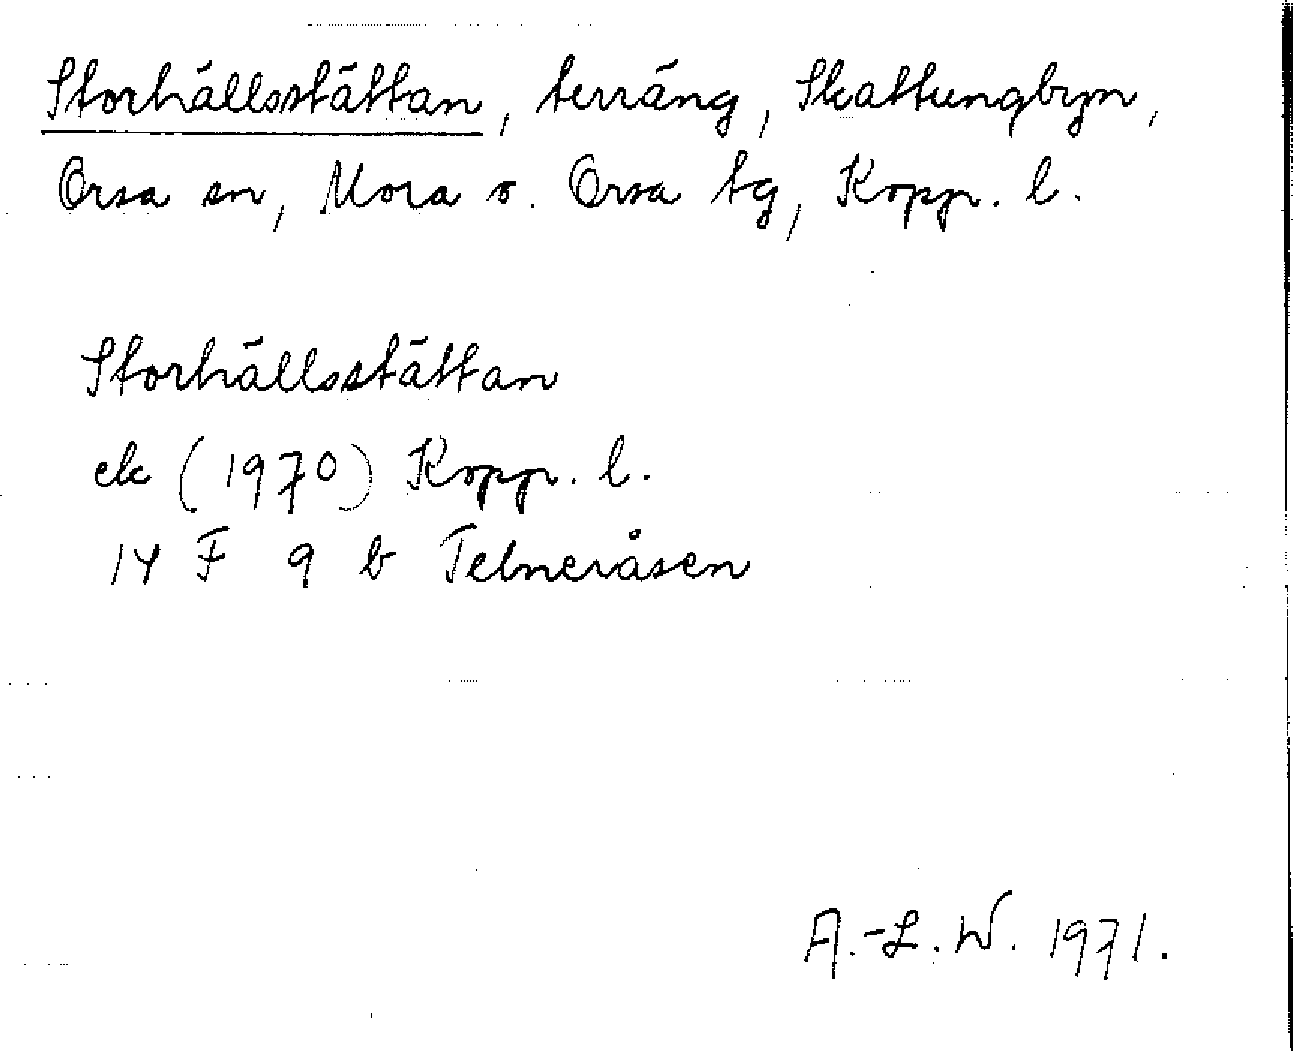 Storhällsstättan, terräng, Skattungbyn,
Orsa sn, Mora o. Orsa tg, Kopp. l.
Storhällsstättan
ek (1970) Kopp. l.
14 F 9 b Telneråsen
A.-L. W. 1971.